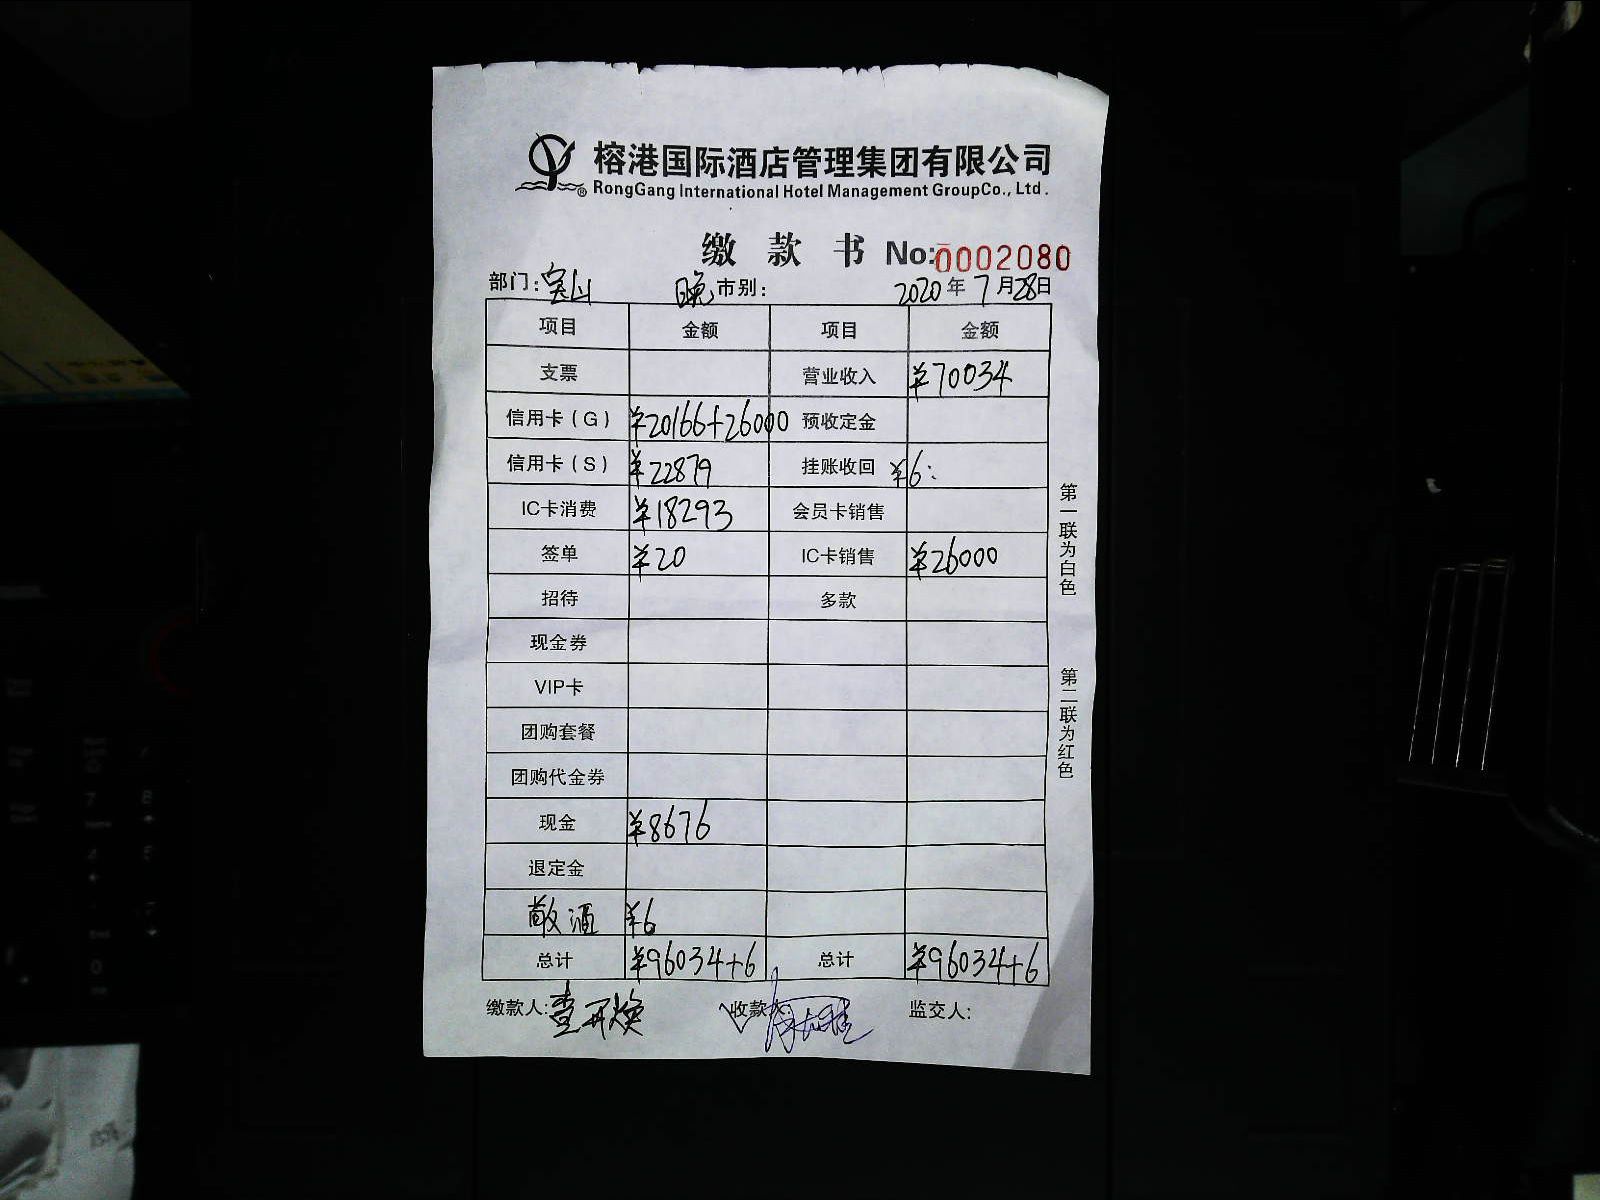 榕港国际酒店管理集团有限公司
® RongGang International Hotel Management GroupCo., Ltd.
缴 款 书 No:0002080
部门: 宝山 晚市别: 2020年7月28日
项目 金额 项目 金额
支票 营业收入 ¥70034
信用卡(G) ¥20166+26000 预收定金
信用卡(S) ¥22879 挂账收回 ¥6:
IC卡消费 ¥18293 会员卡销售
签单 ¥20 IC卡销售 ¥26000
招待 多款
现金券
VIP卡
团购套餐
团购代金券
现金 ¥8676
退定金
散酒 ¥6
总计 ¥96034+6 总计 ¥96034+6
缴款人: 查开焕 收款人: 监交人:
第一联为白色
第二联为红色